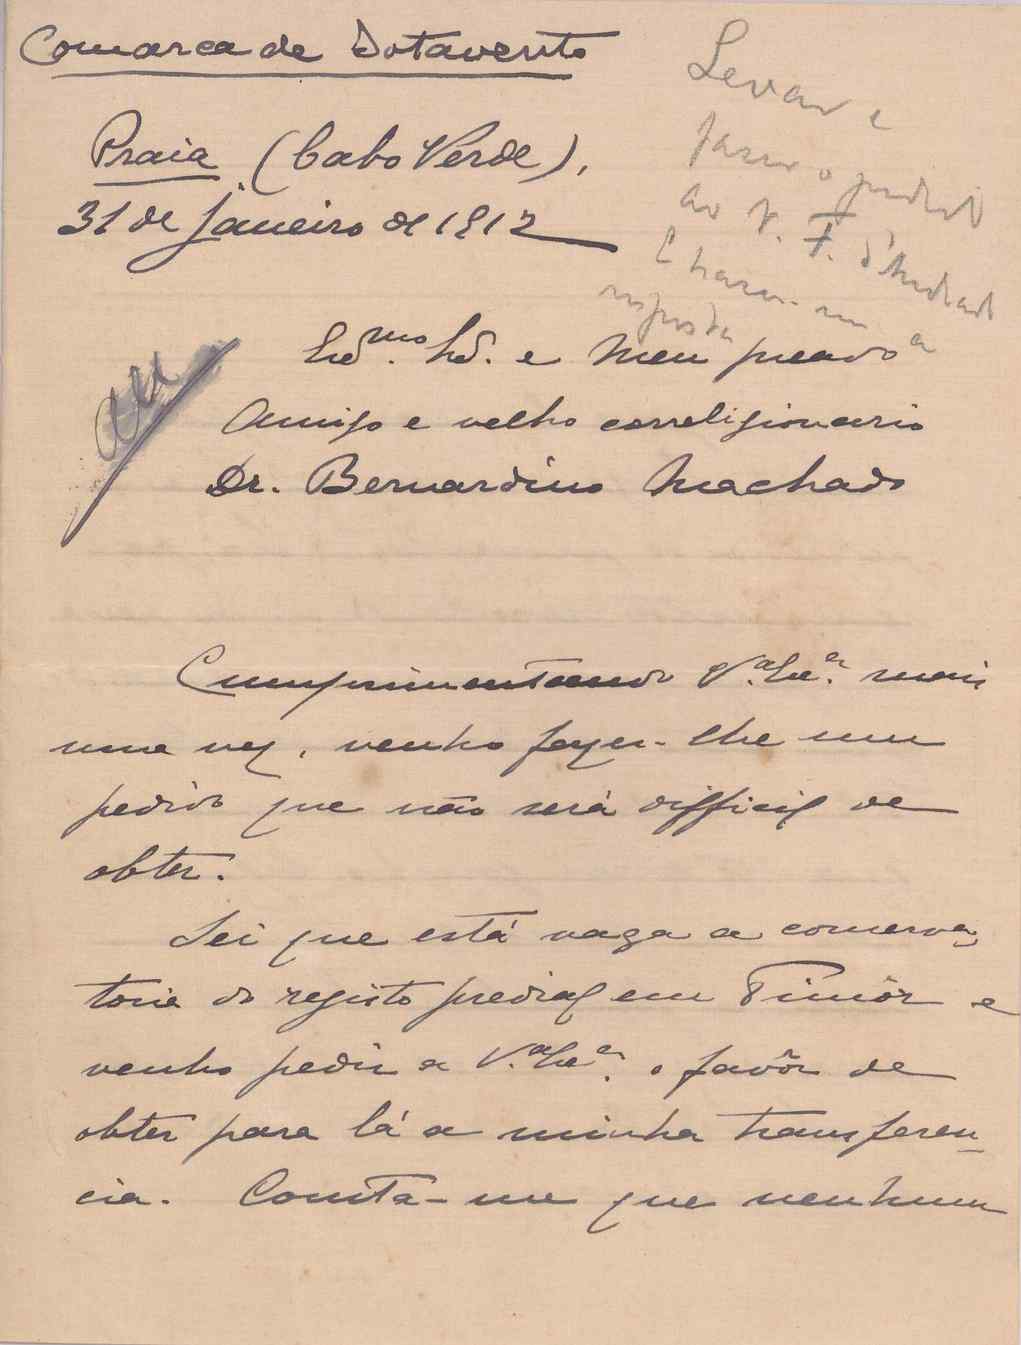 Comarca de Sotavento
Praia (Cabo Verde),
31 de Janeiro de 1912
Levar e
fazer o pedido
ao V. F. d'Andrade
e trazer-me a
resposta
Ex.mo Sr. e Meu presado
Amigo e velho correligionario
Dr. Bernardino Machado
Cumprimentando V.a Ex.a mais
uma vez, venho fazer-lhe um
pedido que não será difficil de
obter.
Sei que está vaga a conserva-
toria do registo predial em Timôr e
venho pedir a V.a Ex.a o favôr de
obter para lá a minha transferen-
cia. Consta-me que nenhum